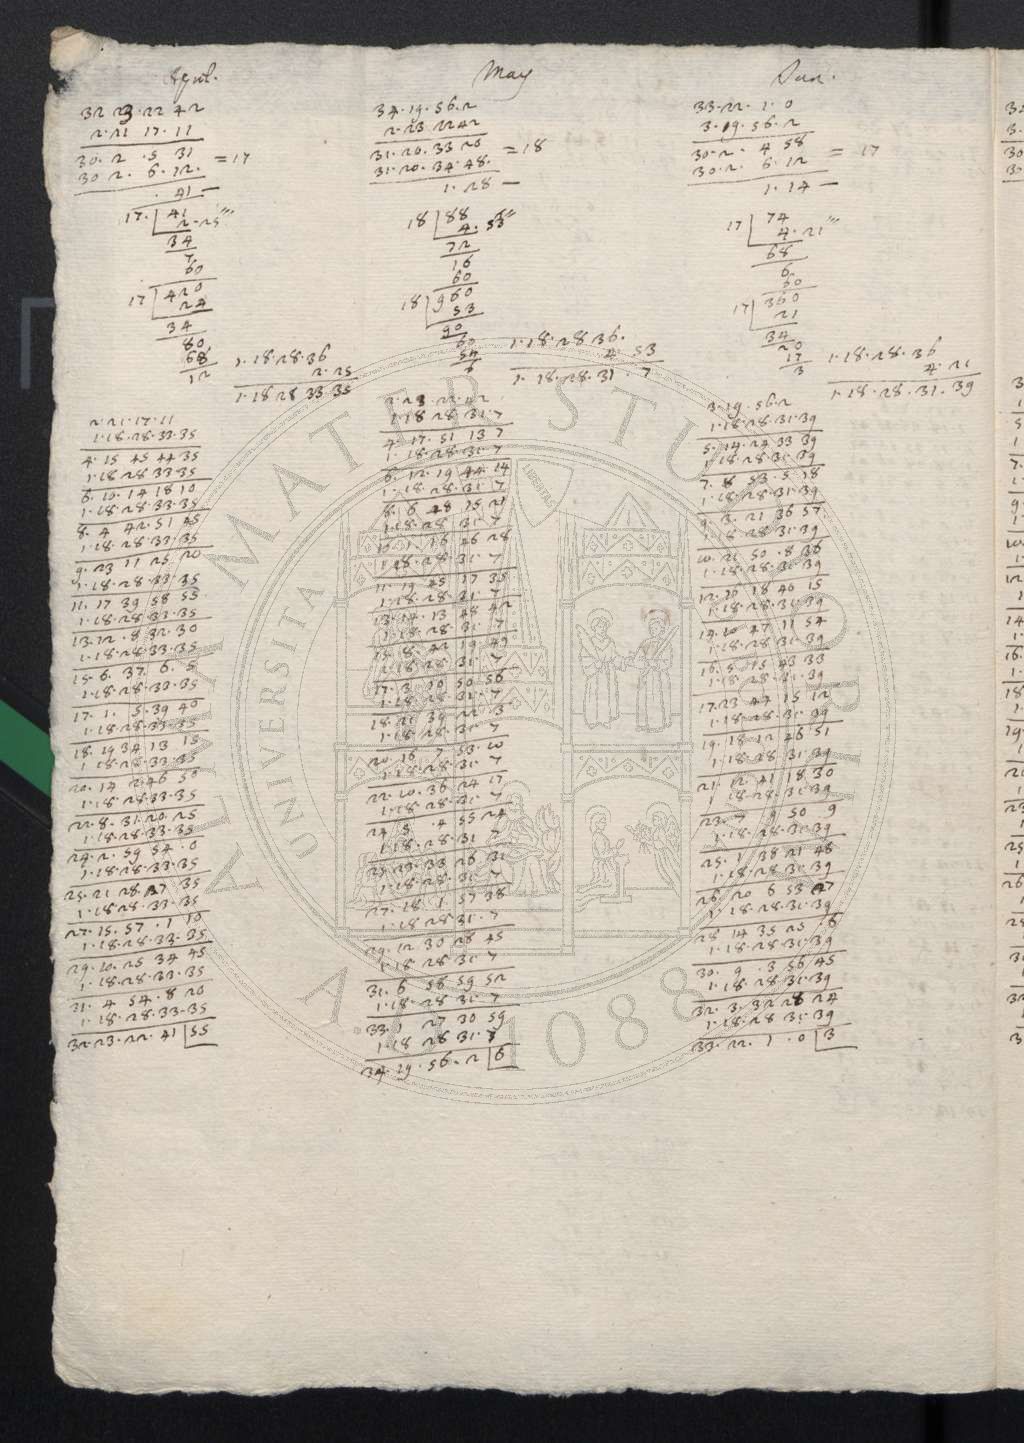 April.
32 23. 22 42
2. 21 17. 11
30. 2 . 5 31
= 17
30 2. 6. 12.
. 41 —
17. 41
2. 25'''
34
7
60
17 420
24
34
80
68
12
1. 18. 28. 36
2. 25
1. 18 28 33 35
2. 21. 17. 11
1. 18. 28. 33. 35
4. 15 45 44 35
1. 18 28 33 35
6. 10. 14 18 10
1. 18. 28 33. 35
8. 4 42. 51 45
1. 18. 28 33. 35
9. 23 11 25 20
1. 18. 28. 33. 35
11. 17 39 58 55
1. 18. 28. 33. 35
13. 12. 8 32. 30
1. 18. 28. 33. 35
15. 6. 37. 6. 5
1. 18 28. 33. 35
17. 1. 5. 39 40
1. 18. 28. 33. 35
18. 19 34 13 15
1 18 28. 33. 35
20. 14 2. 46 50
1. 18. 28. 33. 35
22. 8. 31. 20 25
1. 18. 28. 33. 35
24. 2. 59 54. 0
1. 18. 28. 33. 35
25. 21 28. 27 35
1. 18. 28. 33. 35
27. 15. 57. 1 10
1. 18. 28. 33. 35
29. 10. 25 34 45
1. 18. 28. 33. 35
31. 4 54. 8 20
1. 18. 28. 33. 35
32. 23. 22. 41 55
May
34. 19. 56. 2
2. 23. 22 42
31. 20. 33 20
= 18
31. 20. 34. 48.
1. 28 —
18 88
4. 53'''
72
16
60
18 960
53
90
60
54
6
1. 18. 28 36.
4. 53
1. 18. 28. 31. 7
2. 23 22. 42
1. 18 28 31. 7
4. 17. 51 13 7
1. 18. 28. 31. 7
6. 12. 19 44 14
1. 18. 28 31. 7
8. 6 48 15 21
1. 18. 28 31. 7
10. 1. 16 46 28
1. 18. 28. 31. 7
11. 19 45 17 35
1. 18. 28. 31. 7
13. 14. 13 48 42
1. 18. 28 31. 7
15. 8. 42 19. 49
1. 18. 28 31. 7
17. 3. 10 50 56
1. 18. 28 31. 7
18. 21 39 22 3
1. 18. 28 31. 7
20 16 7 53. 10
1. 18. 28. 31. 7
22. 10. 36 24 17
1. 18. 28. 31. 7
24 5 . 4 55 24
1. 18. 28. 31 7
25 23. 33 26 31
1. 18. 28. 31. 7
27. 18 1 57 38
1. 18 28 31. 7
29. 12 30 28 45
1. 18 28 31. 7
31. 6 58 59 52
1. 18. 28 31. 7
33 1 27 30 59
1. 18 28 31. 7
34. 19. 56. 2 6
Jun.
33. 22. 1. 0
3. 19. 56. 2
30. 2. 4 58
= 17
30. 2. 6. 12
1. 14 —
17 74
4. 21'''
68
6
60
17 360
21
34
20
17
3
1. 18. 28. 36
4. 21
1. 18. 28. 31. 39
3. 19. 56. 2
1. 18. 28. 31. 39
5. 14. 24 33 39
1. 18. 28. 31. 39
7. 8 53. 5. 18
1. 18. 28. 31. 39
9. 3. 21 36 57
1. 18 28. 31. 39
10. 21 50. 8 36
1. 18. 28. 31. 39
12. 16 18 40 15
1. 18. 28. 31. 39
14. 10 47 11 54
1. 18. 28. 31. 39
16. 5. 15 43 33
1. 18. 28. 31. 39
17. 23 44 15 12
1. 18. 28. 31. 39
19. 18. 12 46 51
1. 18. 28. 31. 39
21. 12. 41 18. 30
1 18. 28. 31. 39
23. 7 9 50 9
1. 18. 28. 31. 39
25. 1 38 21 48
1. 18. 28. 31. 39
26 20 6 53 27
1. 18. 28. 31. 39
28 14 35 25 6
1. 18. 28. 31. 39
30. 9 . 3 56 45
1. 18 28. 31. 39
32. 3. 32 28 24
1. 18. 28 31. 39
33. 22. 1. 0 3
ALMA MATER STUDIORUM
UNIVERSITA
A.D. 1088